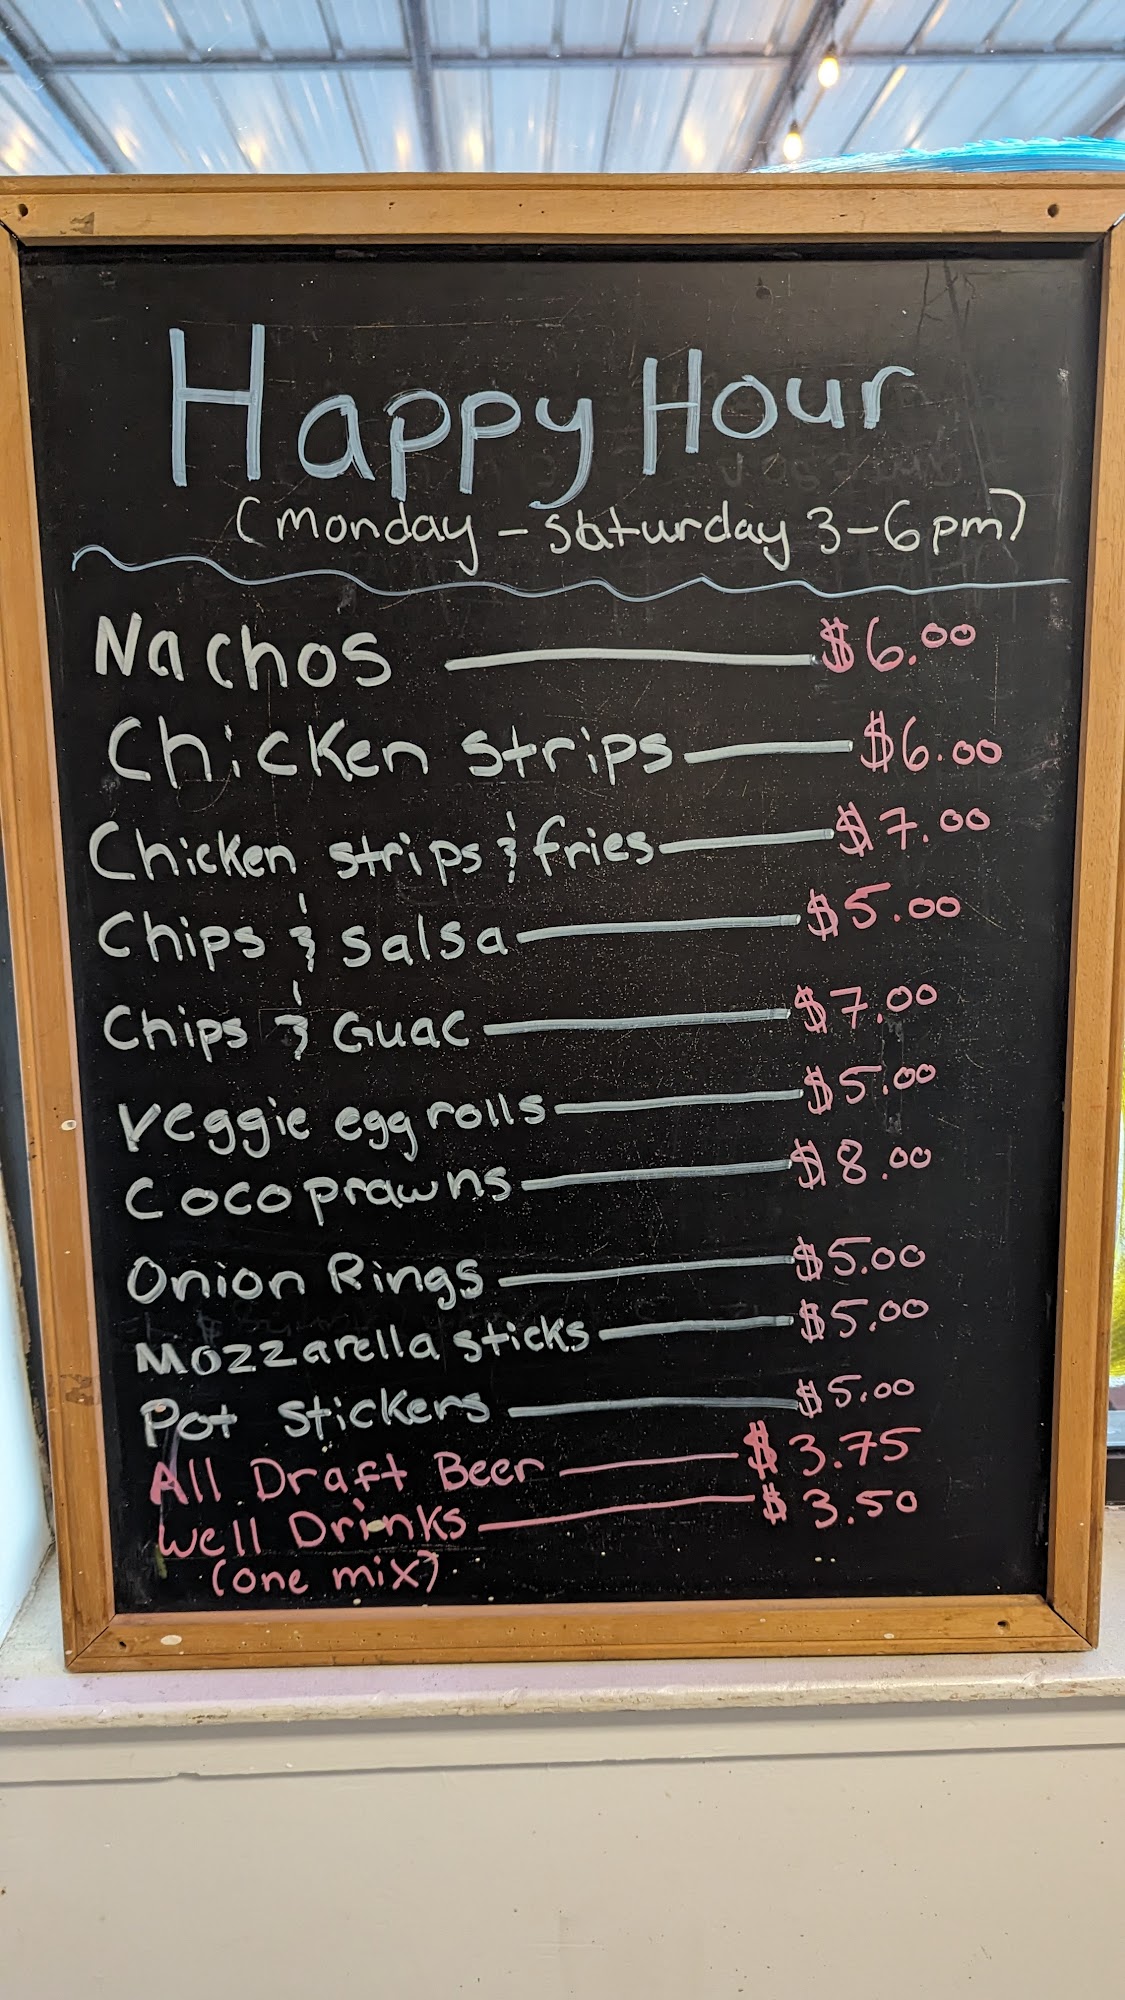 Happy Hour
(Monday - Saturday 3-6pm)
Nachos $6.00
Chicken strips $6.00
Chicken strips & fries $7.00
Chips & salsa $5.00
Chips & Guac $7.00
Veggie egg rolls $5.00
Coco prawns $8.00
Onion Rings $5.00
Mozzarella sticks $5.00
Pot stickers $5.00
All Draft Beer $3.75
Well Drinks $3.50
(one mix)